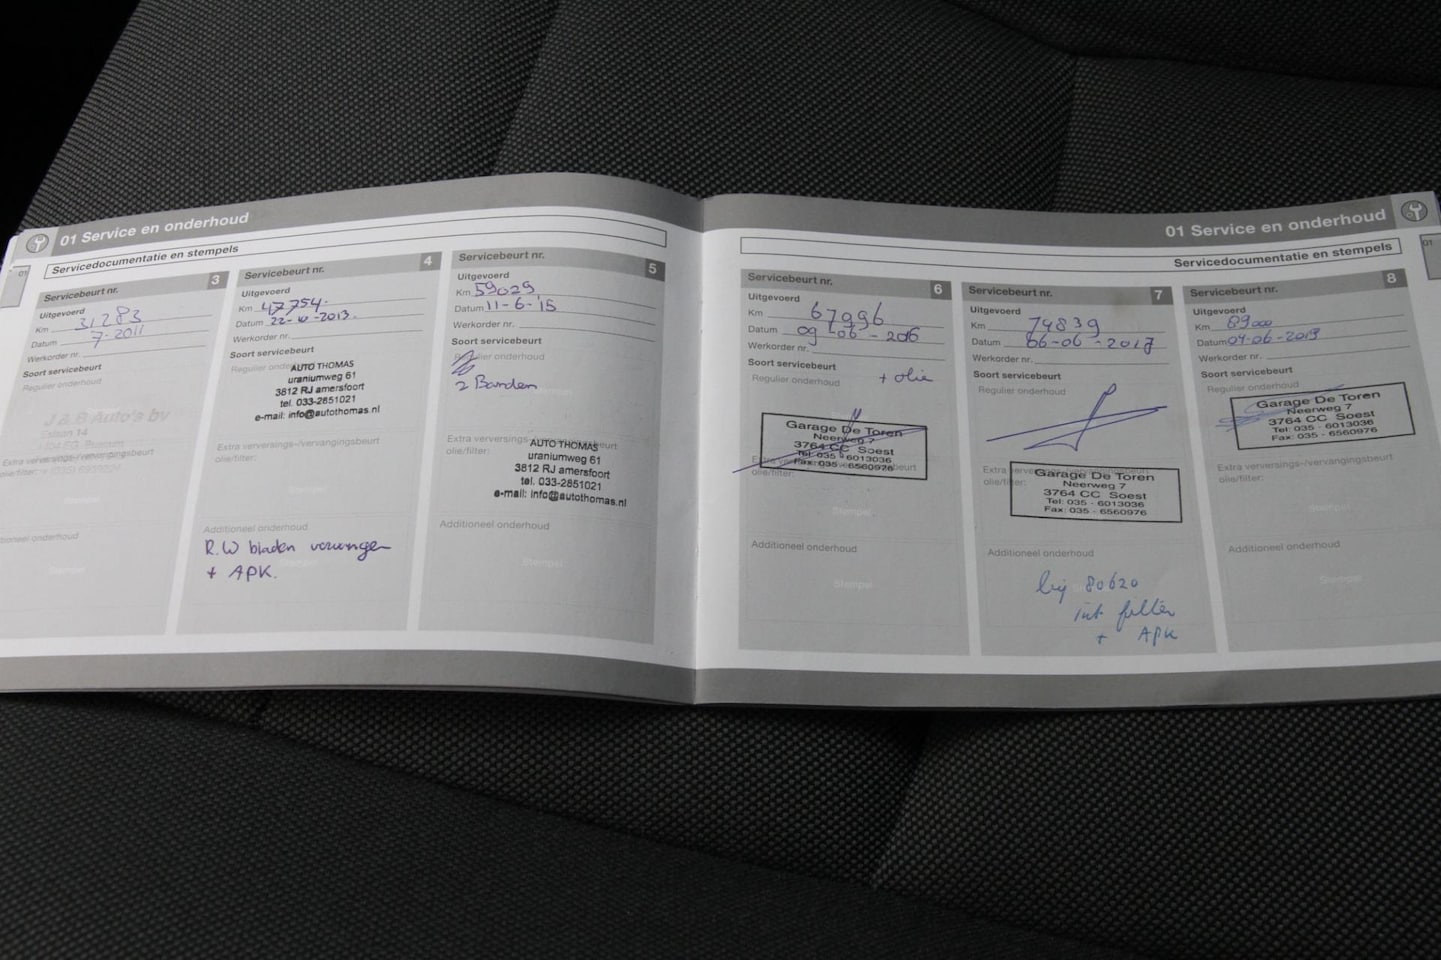 01 Service en onderhoud
Servicedocumentatie en stempels
01
Servicebeurt nr. 3
Uitgevoerd
Km 31283
Datum 7-2011
Werkorder nr.
Soort servicebeurt
Regulier onderhoud
J & B Auto's bv
Extra verversings-/vervangingsbeurt
olie/filter:
Stempel
onderhoud
Stempel
Servicebeurt nr. 4
Uitgevoerd
Km 47754
Datum 22-10-2013
Werkorder nr.
Soort servicebeurt
Regulier
AUTO THOMAS
uraniumweg 61
3812 RJ amersfoort
tel. 033-2851021
e-mail: info@autothomas.nl
Extra verversings-/vervangingsbeurt
olie/filter:
Additioneel onderhoud
R.W bladen
+ APK.
Servicebeurt nr. 5
Uitgevoerd
Km 59029
Datum 11-6-'15
Werkorder nr.
Soort servicebeurt
Regulier onderhoud
2 Banden
Extra verversings-
olie/filter:
AUTO THOMAS
uraniumweg 61
3812 RJ amersfoort
tel. 033-2851021
e-mail: info@autothomas.nl
Additioneel onderhoud
Stempel
01 Service en onderhoud
Servicedocumentatie en stempels
01
Servicebeurt nr. 6
Uitgevoerd
Km 67996
Datum 09-06-2016
Werkorder nr.
Soort servicebeurt
Regulier onderhoud + olie
Garage De Toren
Neerweg 7
3764 CC Soest
Tel: 035 - 6013036
Fax: 035 - 6560976
olie/filter:
Stempel
Additioneel onderhoud
Stempel
Servicebeurt nr. 7
Uitgevoerd
Km 74839
Datum 06-06-2017
Werkorder nr.
Soort servicebeurt
Regulier onderhoud
Extra verversings-/vervangingsbeurt
olie/filter:
Garage De Toren
Neerweg 7
3764 CC Soest
Tel: 035 - 6013036
Fax: 035 - 6560976
Additioneel onderhoud
bij 80620
int filter
+ APK
Servicebeurt nr. 8
Uitgevoerd
Km 89000
Datum 04-06-2019
Werkorder nr.
Soort servicebeurt
Regulier onderhoud
Garage De Toren
Neerweg 7
3764 CC Soest
Tel: 035 - 6013036
Fax: 035 - 6560976
Extra verversings-/vervangingsbeurt
olie/filter:
Stempel
Additioneel onderhoud
Stempel